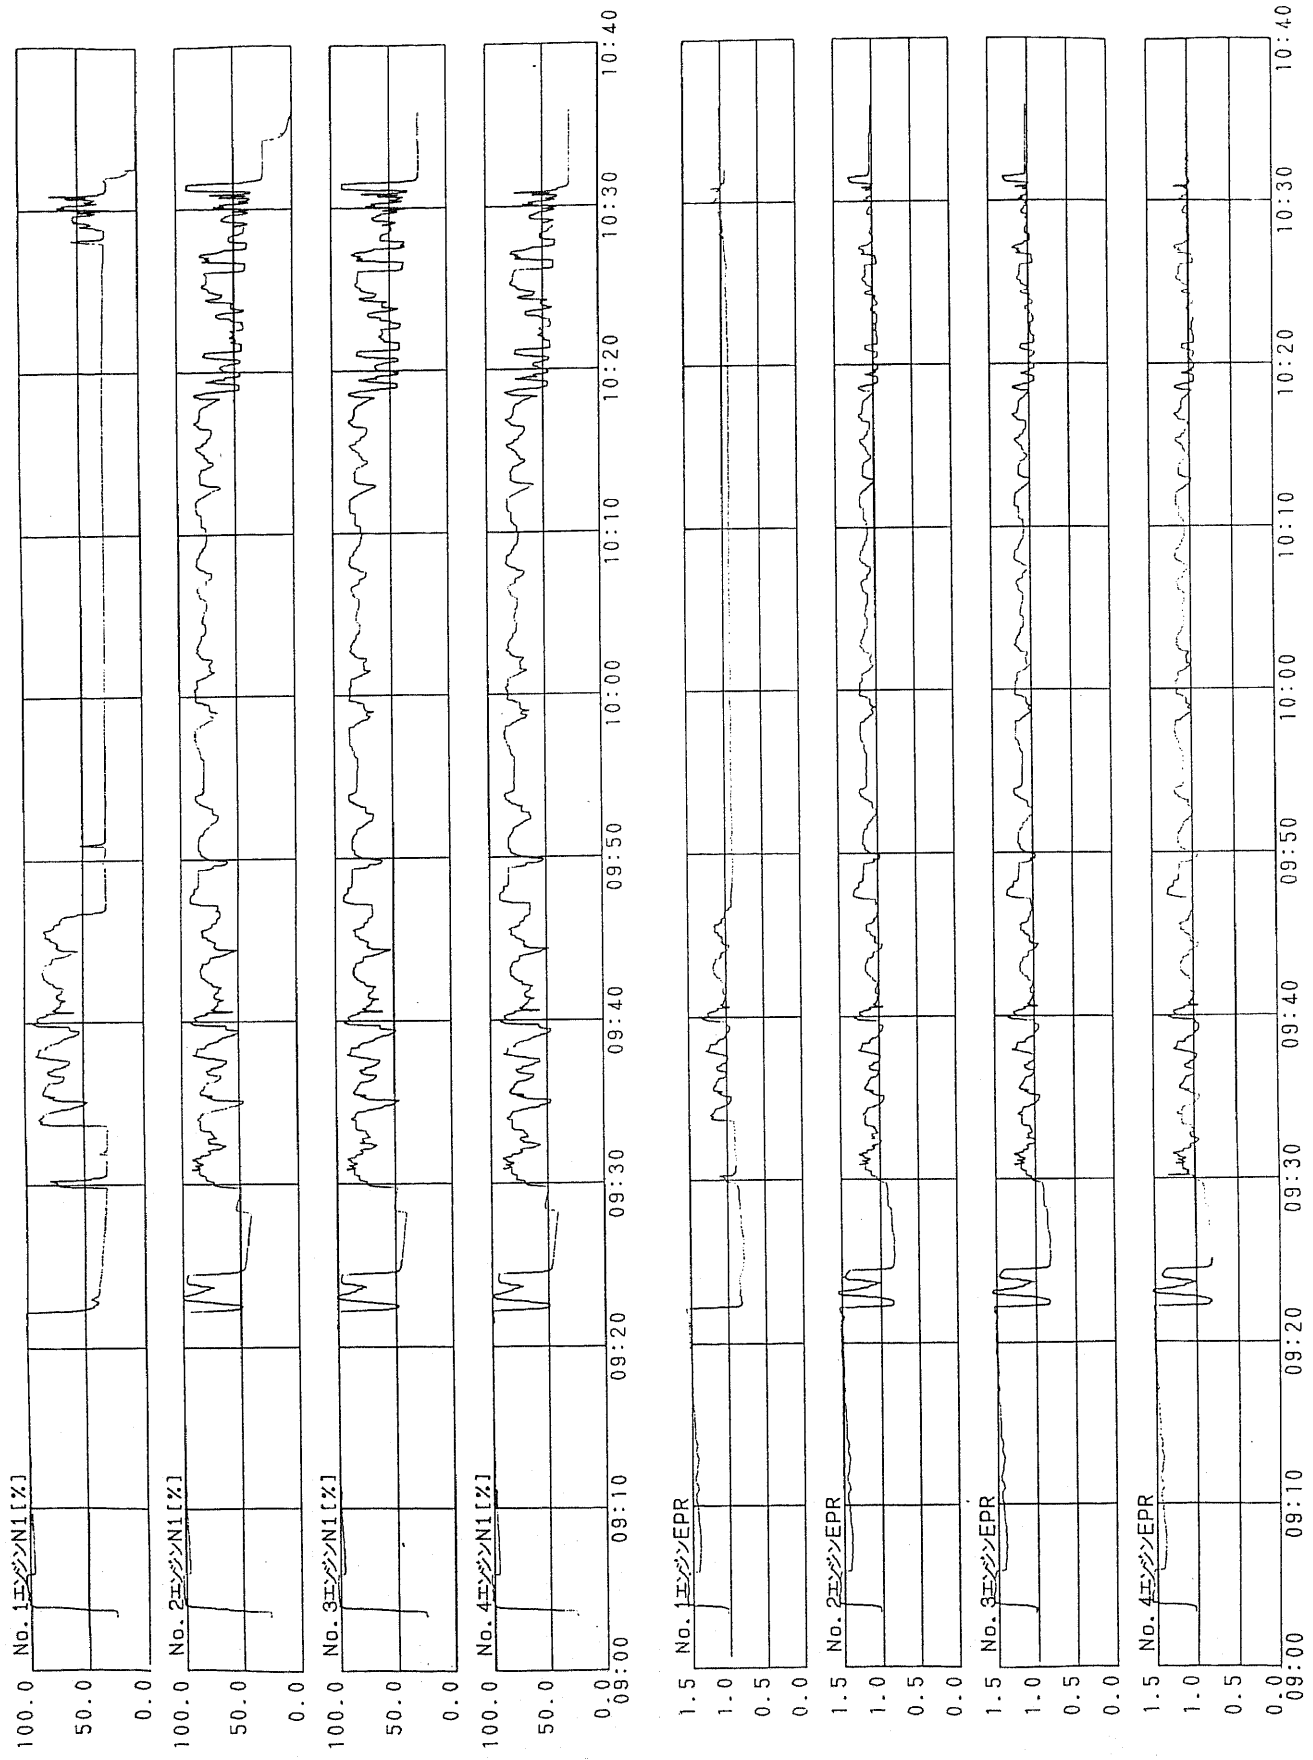 No.1エンジンN1[%]
100.0
50.0
0.0
No.2エンジンN1[%]
100.0
50.0
0.0
No.3エンジンN1[%]
100.0
50.0
0.0
No.4エンジンN1[%]
100.0
50.0
0.0
09:00 09:10 09:20 09:30 09:40 09:50 10:00 10:10 10:20 10:30 10:40
No.1エンジンEPR
1.5
1.0
0.0
No.2エンジンEPR
1.5
1.0
0.5
0.0
No.3エンジンEPR
1.5
1.0
0.5
0.0
No.4エンジンEPR
1.5
1.0
0.5
0.0
09:00 09:10 09:20 09:30 09:40 09:50 10:00 10:10 10:20 10:30 10:40